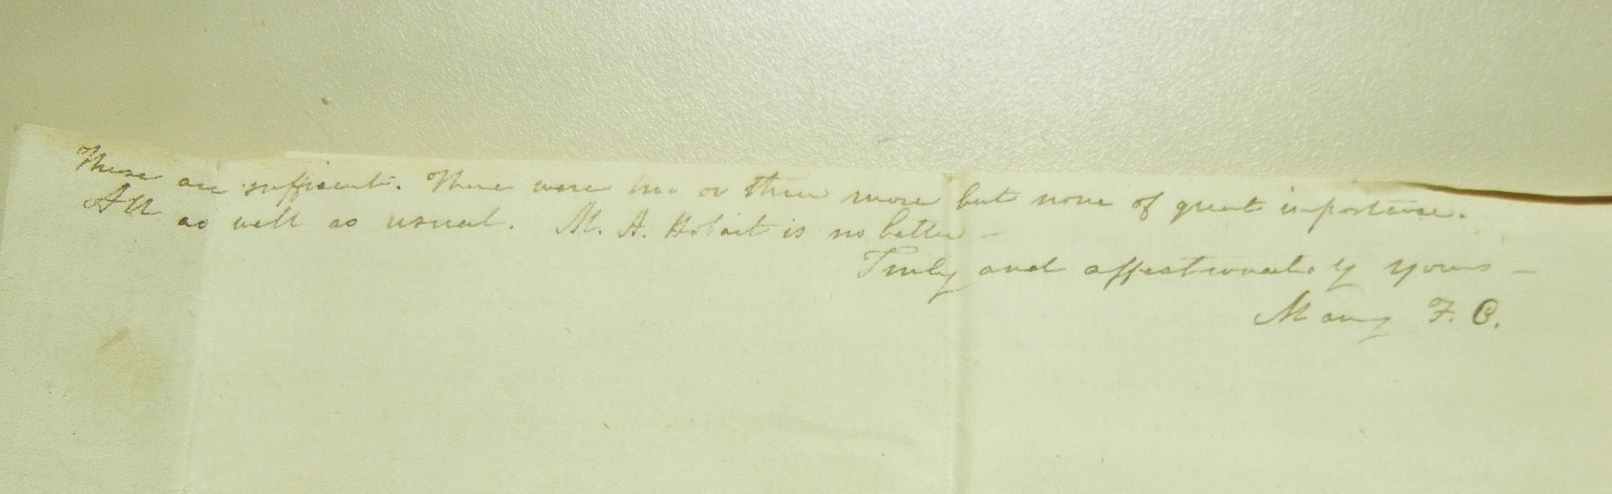 These are sufficent. There were two or three more but none of great importance.
All as well as usual. M. A. Hobart is no better –
Truly and affectionately yours –
Mary F. C.